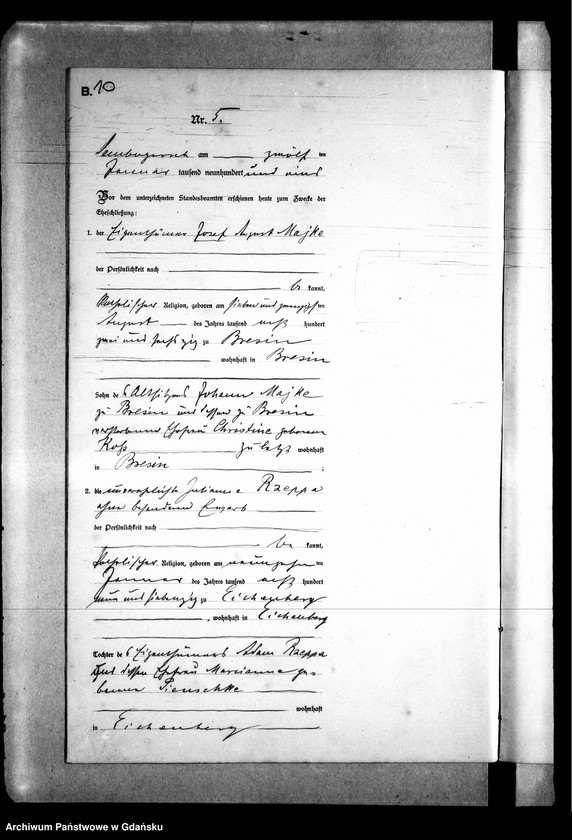 B. 10
Nr. 5.
am zwölf ten
Januar tausend neunhundert und eins
Vor dem unterzeichneten Standesbeamten erschienen heute zum Zwecke der
Eheschließung:
1. der Eigenthümer Josef August Majke
der Persönlichkeit nach
be kannt,
katholischer Religion, geboren am sieben und zwanzigsten
August des Jahres tausend acht hundert
zwei und sechszig zu Bresin
wohnhaft in Bresin
Sohn des Altsitzers Johann Majke
zu Bresin und dessen zu Bresin
verstorbenen Ehefrau Christine geborenen
Roß zuletzt wohnhaft
in Bresin ;
2. die unverehelichte Julianne Rzeppa
ohne besonderen Erwerb
der Persönlichkeit nach
be kannt,
katholischer Religion, geboren am neunzehn ten
Januar des Jahres tausend acht hundert
neun und siebenzig zu Eichenberg
, wohnhaft in Eichenberg
Tochter des Eigenthümers Adam Rzeppa
und dessen Ehefrau Marcianna ge=
borenen Pieuschke
wohnhaft
in Eichenberg
Archiwum Państwowe w Gdańsku